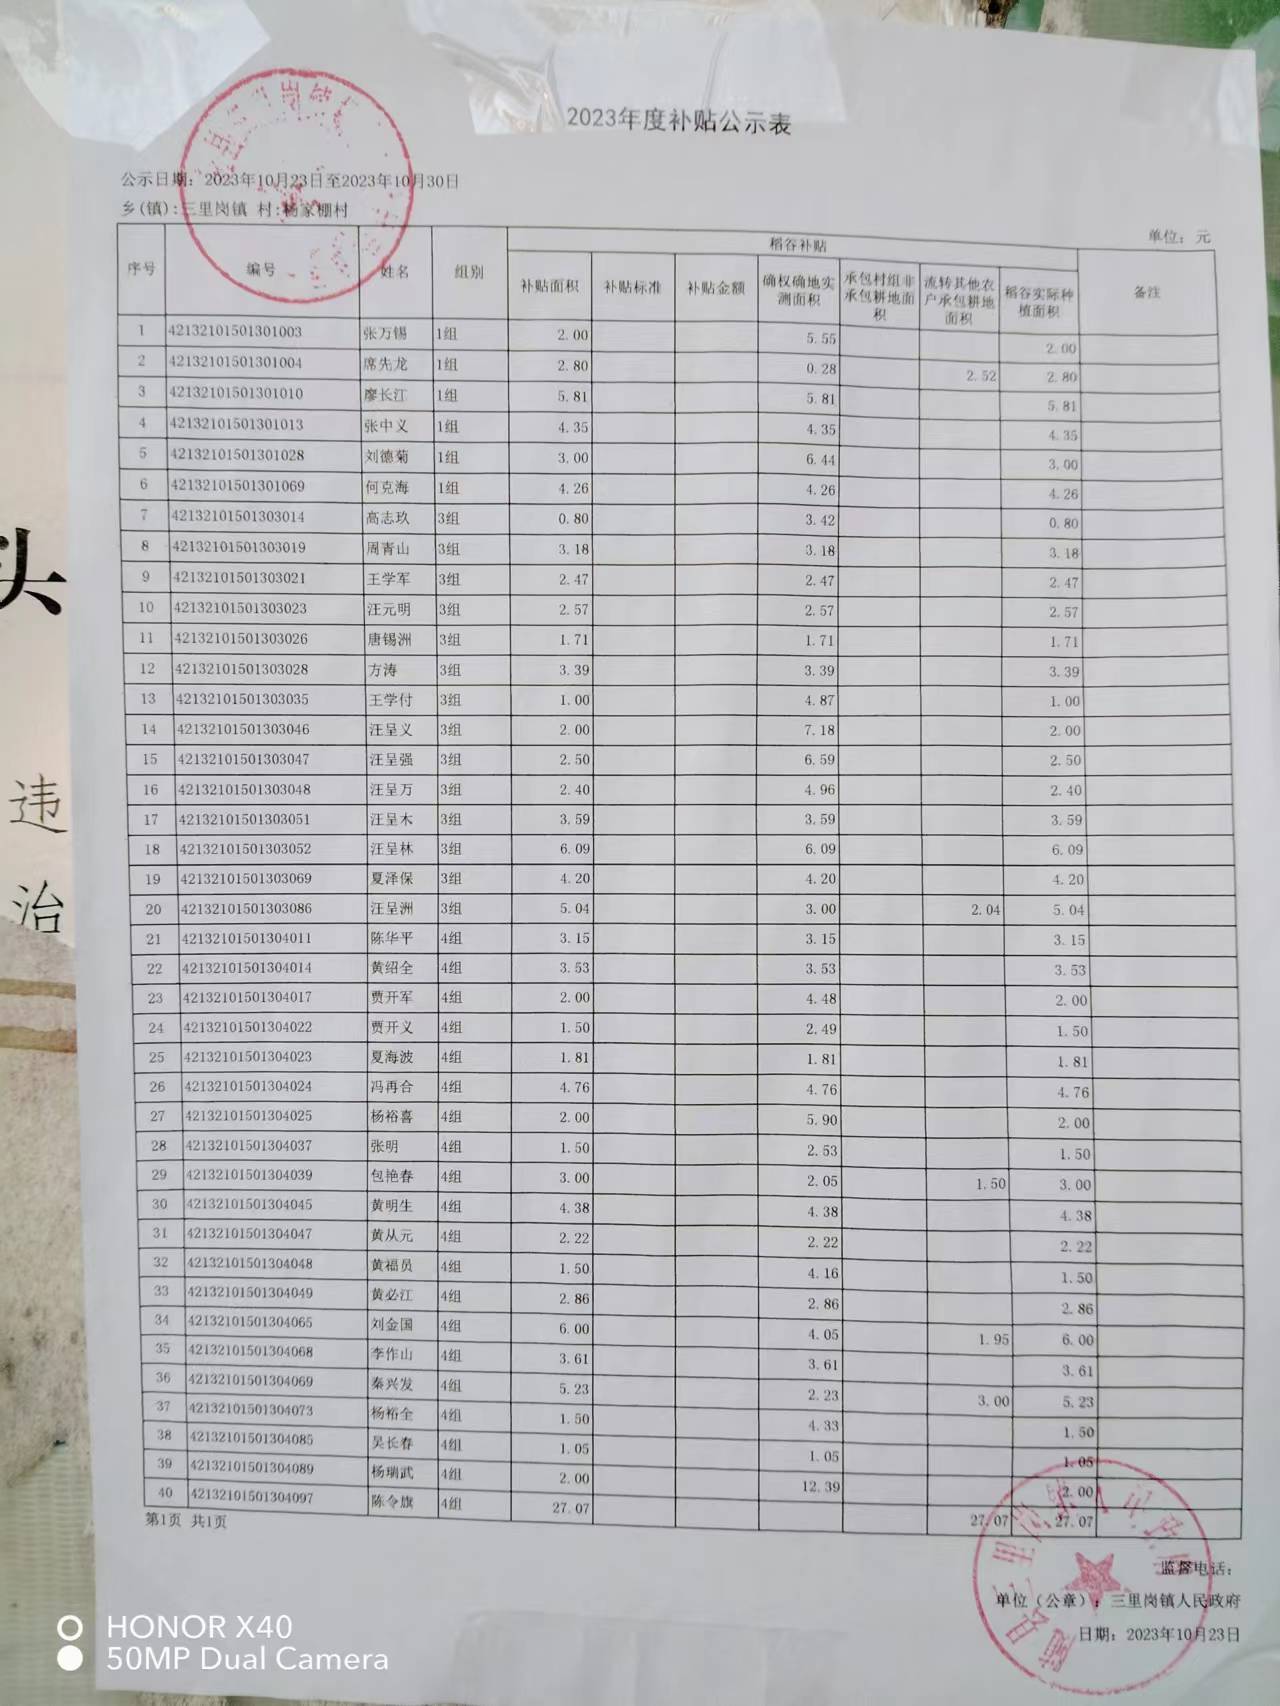 2023年度补贴公示表
公示日期: 2023年10月23日至2023年10月30日
乡(镇):三里岗镇 村:杨家棚村
单位: 元
序号 编号 姓名 组别 稻谷补贴 备注
补贴面积 补贴标准 补贴金额 确权确地实测面积 承包村组非承包耕地面积 流转其他农户承包耕地面积 稻谷实际种植面积
1 42132101501301003 张万锡 1组 2.00 5.55 2.00
2 42132101501301004 席先龙 1组 2.80 0.28 2.52 2.80
3 42132101501301010 廖长江 1组 5.81 5.81 5.81
4 42132101501301013 张中义 1组 4.35 4.35 4.35
5 42132101501301028 刘德菊 1组 3.00 6.44 3.00
6 42132101501301069 何克海 1组 4.26 4.26 4.26
7 42132101501303014 高志玖 3组 0.80 3.42 0.80
8 42132101501303019 周青山 3组 3.18 3.18 3.18
9 42132101501303021 王学军 3组 2.47 2.47 2.47
10 42132101501303023 汪元明 3组 2.57 2.57 2.57
11 42132101501303026 唐锡洲 3组 1.71 1.71 1.71
12 42132101501303028 方涛 3组 3.39 3.39 3.39
13 42132101501303035 王学付 3组 1.00 4.87 1.00
14 42132101501303046 汪呈义 3组 2.00 7.18 2.00
15 42132101501303047 汪呈强 3组 2.50 6.59 2.50
16 42132101501303048 汪呈万 3组 2.40 4.96 2.40
17 42132101501303051 汪呈木 3组 3.59 3.59 3.59
18 42132101501303052 汪呈林 3组 6.09 6.09 6.09
19 42132101501303069 夏泽保 3组 4.20 4.20 4.20
20 42132101501303086 汪呈洲 3组 5.04 3.00 2.04 5.04
21 42132101501304011 陈华平 4组 3.15 3.15 3.15
22 42132101501304014 黄绍全 4组 3.53 3.53 3.53
23 42132101501304017 贾开军 4组 2.00 4.48 2.00
24 42132101501304022 贾开义 4组 1.50 2.49 1.50
25 42132101501304023 夏海波 4组 1.81 1.81 1.81
26 42132101501304024 冯再合 4组 4.76 4.76 4.76
27 42132101501304025 杨裕喜 4组 2.00 5.90 2.00
28 42132101501304037 张明 4组 1.50 2.53 1.50
29 42132101501304039 包艳春 4组 3.00 2.05 1.50 3.00
30 42132101501304045 黄明生 4组 4.38 4.38 4.38
31 42132101501304047 黄从元 4组 2.22 2.22 2.22
32 42132101501304048 黄福员 4组 1.50 4.16 1.50
33 42132101501304049 黄必江 4组 2.86 2.86 2.86
34 42132101501304065 刘金国 4组 6.00 4.05 1.95 6.00
35 42132101501304068 李作山 4组 3.61 3.61 3.61
36 42132101501304069 秦兴发 4组 5.23 2.23 3.00 5.23
37 42132101501304073 杨裕全 4组 1.50 4.33 1.50
38 42132101501304085 吴长春 4组 1.05 1.05 1.05
39 42132101501304089 杨瑞武 4组 2.00 12.39 2.00
40 42132101501304097 陈令旗 4组 27.07 27.07 27.07
第1页 共1页
监督电话:
单位(公章): 三里岗镇人民政府
日期: 2023年10月23日
随县三里岗镇人民政府
头
违
治
HONOR X40
50MP Dual Camera